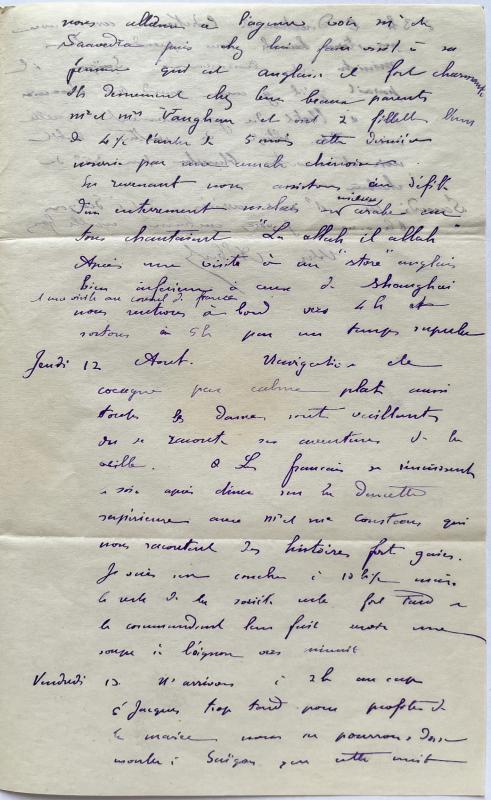 nous allâmes à l'agence voir Mr de
Saavedra puis chez lui faire visite à sa
femme qui est anglaise et fort charmante
Ils demeurent chez leur beaux parents
Mr et Mme Vaughan et ont 2 fillettes l'une
de 4 1/2 l'autre de 5 mois cette dernière
nourrie par une amah chinoise
En revenant nous assistons au défilé
d'un enterrement malais arabe
tous chantaient "La allah il allah"
Après une visite à un "store" anglais
bien inférieur à ceux de Shanghai
& une visite au consul de france
nous rentrons à bord vers 4h et
sortons à 5h par un temps superbe
Jeudi 12 Aout. Navigation de
cocagne par calme plat aussi
toutes les dames sont vaillantes
on se raconte ses aventures de la
veille. Les français se réunissent
ce soir après diner sur la dunette
supérieure avec Mr et Me Constans qui
nous racontent des histoires fort gaies.
Je vais me coucher à 10 h 1/2 mais
le reste de la société reste fort tard &
le commandant leur fait une
soupe à l'oignon vers minuit
Vendredi 13. N. arrivons à 2h au cap
St Jacques trop tard pour profiter de
la marée nous ne pourrons donc
monter à Saïgon que cette nuit